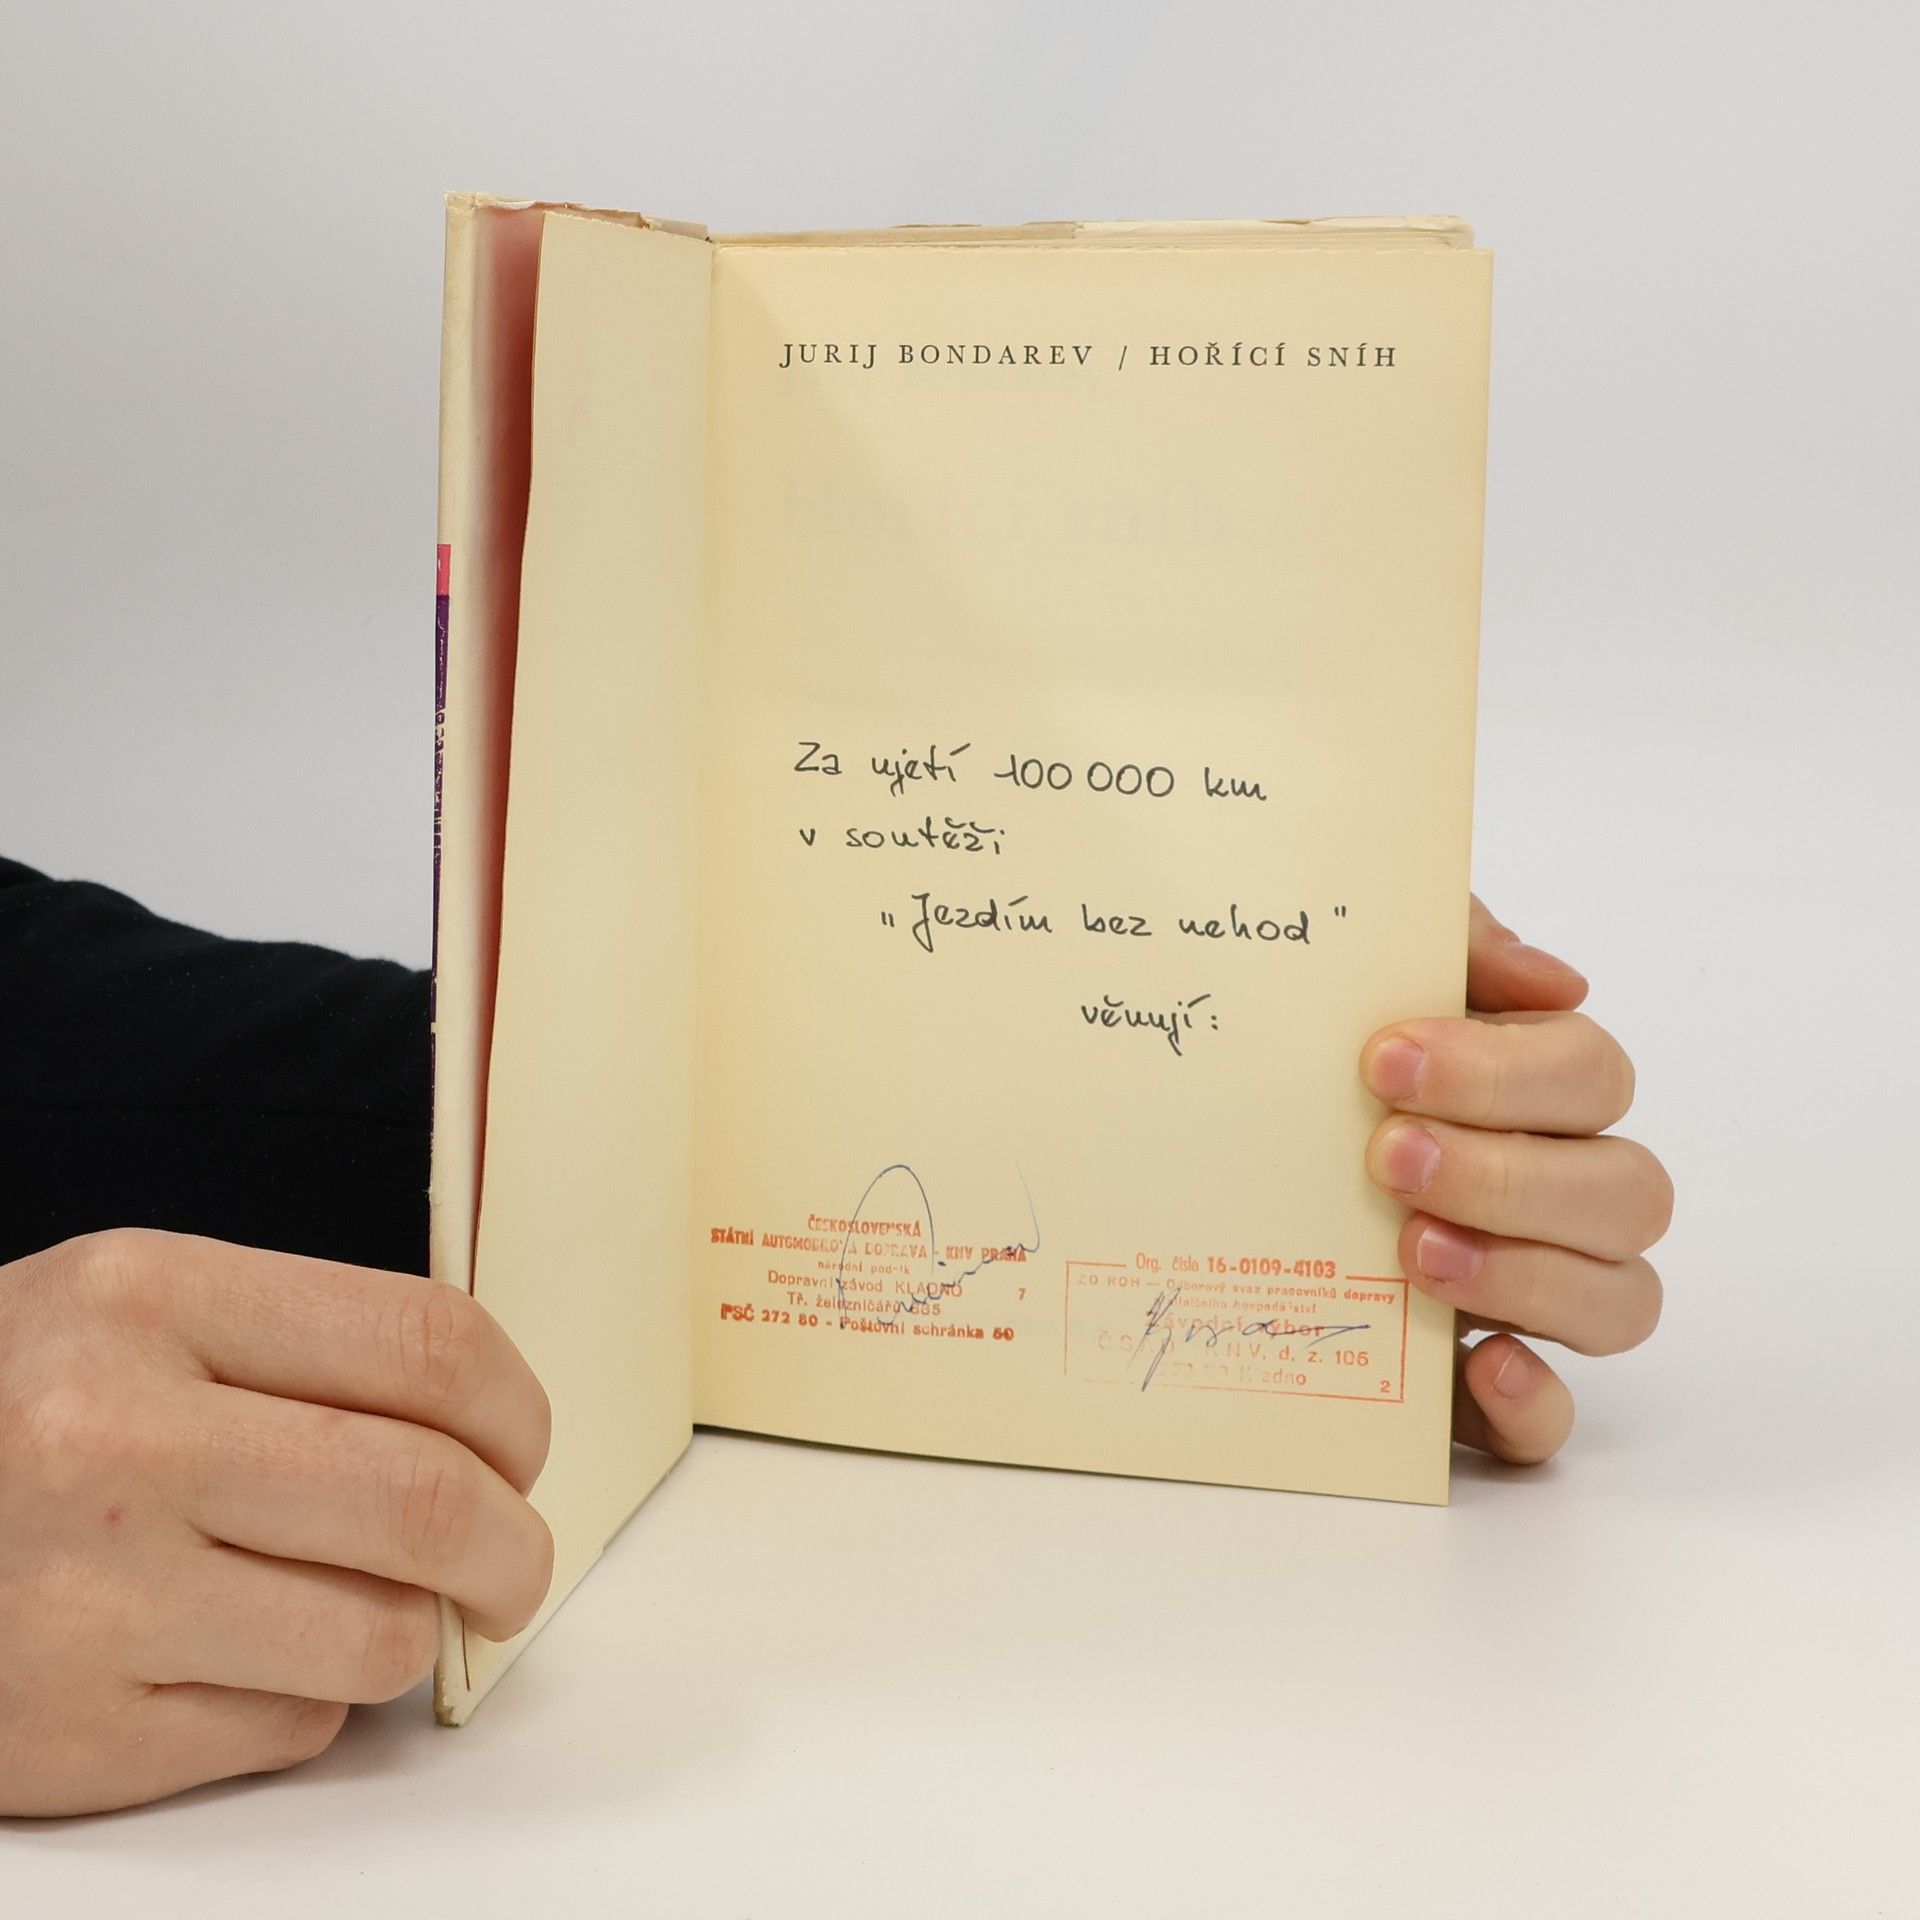 JURIJ BONDAREV / HOŘÍCÍ SNÍH
Za ujetí 100 000 km
v soutěži
„Jezdím bez nehod"
věnují:
ČESKOSLOVENSKÁ
STÁTNÍ AUTOMOBILOVÁ DOPRAVA - KNV PRAHA
národní podnik
Dopravní závod KLADNO 7
Tř. železničářů 885
PSČ 272 80 - Poštovní schránka 50
Org. číslo 16-0109-4103
ZO ROH — Odborový svaz pracovníků dopravy
silničního hospodářství
Závodní výbor
ČSAD KNV, d. z. 106
Kladno
2